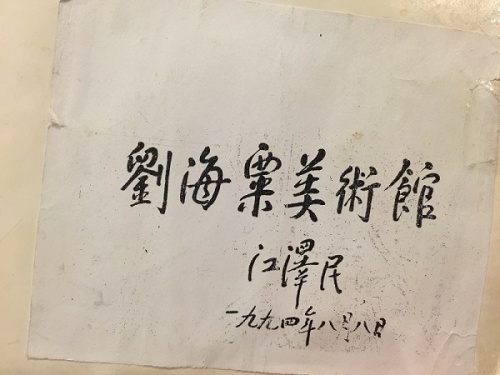 劉海粟美術館
江澤民
一九九四年八月八日